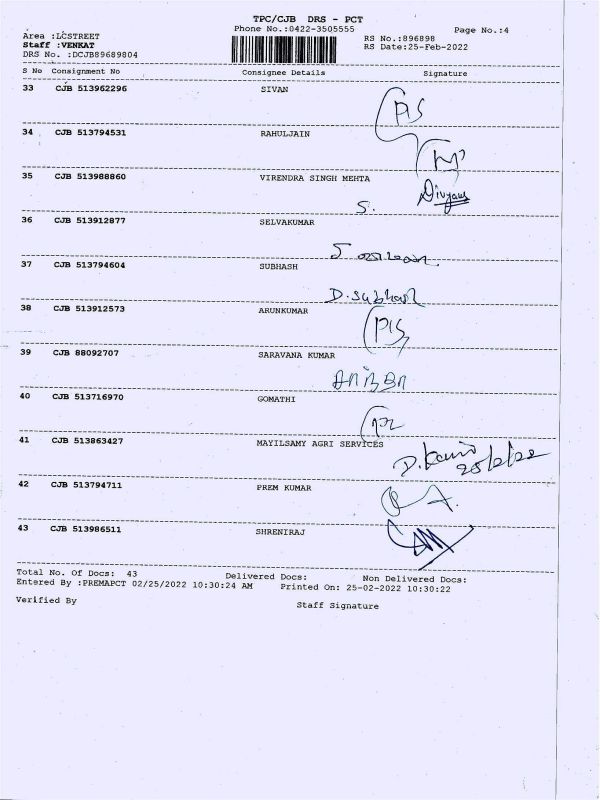 TPC/CJB DRS - PCT
Phone No.:0422-3505555
Page No.:4
Area :LCSTREET
RS No.:896898
Staff :VENKAT
RS Date:25-Feb-2022
DRS No. :DCJB89689804
S No Consignment No Consignee Details Signature
33 CJB 513962296 SIVAN
34 CJB 513794531 RAHULJAIN
35 CJB 513988860 VIRENDRA SINGH MEHTA
S.
36 CJB 513912877 SELVAKUMAR
37 CJB 513794604 SUBHASH
D.Subhash
38 CJB 513912573 ARUNKUMAR
39 CJB 88092707 SARAVANA KUMAR
40 CJB 513716970 GOMATHI
41 CJB 513863427 MAYILSAMY AGRI SERVICES
25/2/22
42 CJB 513794711 PREM KUMAR
43 CJB 513986511 SHRENIRAJ
Total No. Of Docs: 43 Delivered Docs: Non Delivered Docs:
Entered By :PREMAPCT 02/25/2022 10:30:24 AM Printed On: 25-02-2022 10:30:22
Verified By Staff Signature